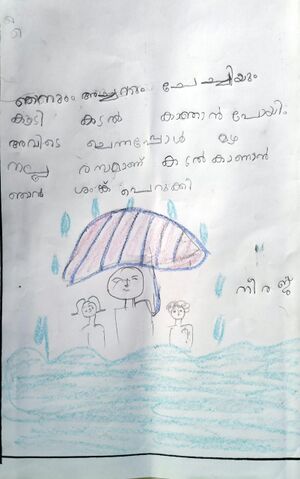 ഞനും അച്ഛനും ചേച്ചിയും
കൂടി കടൽ കാണാൻ പോയി.
അവിടെ ചെന്നപ്പോൾ മഴ
നല്ല രസമാണ് കടൽകാണാൻ
ഞാൻ ശംഖ് പെറുക്കി
നീരജ